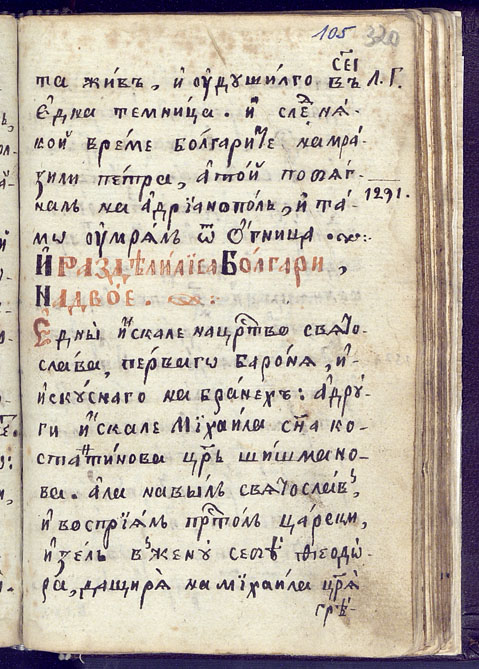 105 320
СЕІ
та живъ, и оудушилго въ Л. Г.
една темница. и слѣ нѧ-
кой време болгарите намра-
зили петра, а той потѧг-
налъ на адріанополь, и та- 1291.
мѡ оумрѧлъ ѿ огница.
И раздѣлилисѧ Болгари,
Надвое.
Едны искале на црⷭтво свѧто-
слава, перваго баронѧ, и
искуснаго на бранехъ: а дру-
ги искале Міхаила сн҃а ко-
статинова цр҃ь шишмано-
ва. ала навылъ свѧтославъ
и воспріѧлъ прⷭтолъ царски,
и зелъ в жену себѣ ѳеодѡ-
ра, дащирѧ на міхаила цр҃ѧ
грѣ-